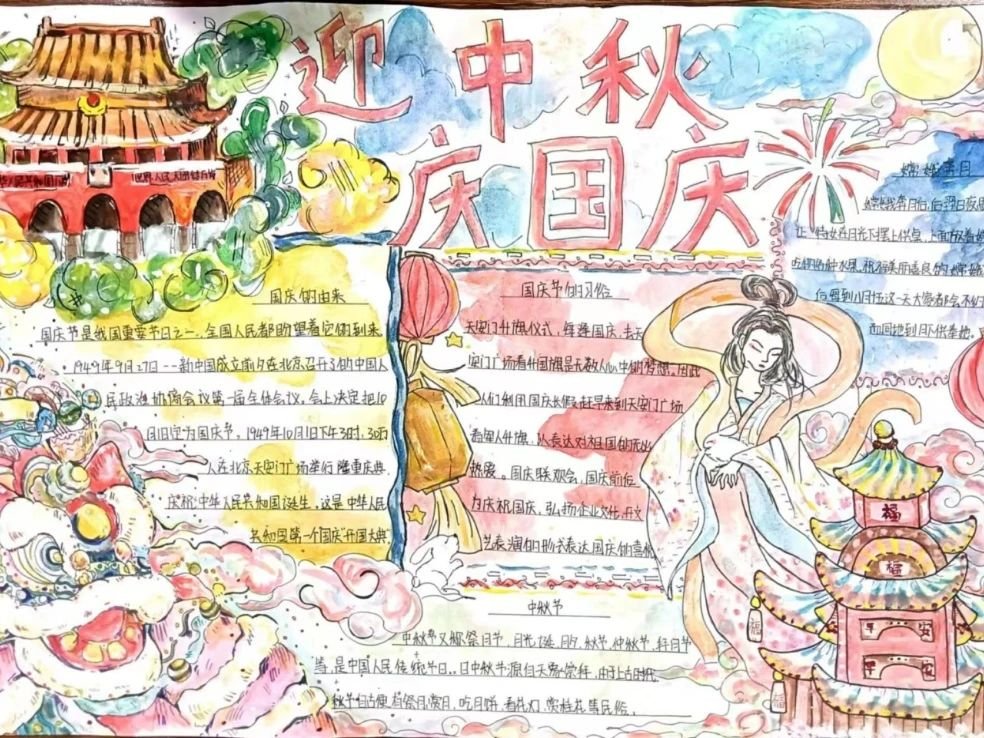 迎中秋
庆国庆
国庆的由来
国庆节是我国重要节日之一，全国人民都盼望着它的到来
1949年9月27日---新中国成立前夕在北京召开了的中国人
民政治协商会议第一届全体会议，会上决定把10
月1日定为国庆节，1949年10月1日下午3时，30万
人在北京天安门广场举行隆重庆典
庆祝中华人民共和国诞生，这是中华人民
共和国第一个国庆"开国大典
国庆节的习俗
天安门升旗仪式，每逢国庆，去天
安门广场看升国旗是无数人心中的梦想，因此
人们利用国庆长假，赶早来到天安门广场
看国人升旗，以表达对祖国的无比
热爱。国庆联欢会，国庆前后
为庆祝国庆，弘扬企业文化，用文
艺表演的形式表达国庆的喜悦
中秋节
中秋节又称祭月节、月光诞、月夕、秋节、仲秋节、拜月节
等，是中国人民传统节日。
秋节自古便有祭月、赏月、吃月饼、看花灯、赏桂花等民俗，
嫦娥奔月
嫦娥奔月后，后羿日夜思
让侍女在月光下摆上供桌，上面放着
的各种水果，祝福美丽善良的嫦娥
后羿到八月十五这一天大家都会不约
而同地到月下供奉她。
世界人民大团结万岁
福
福
平安
平安
福
福